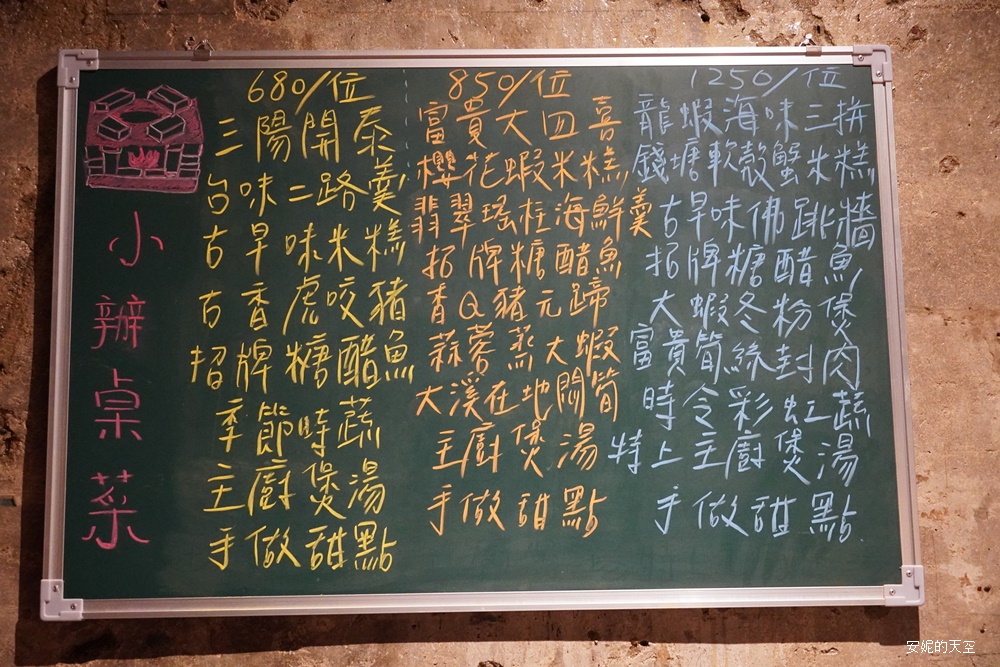 小辦桌菜
680/位
三陽開泰
台味二路羹
古早味米糕
古香虎咬豬
招牌糖醋魚
季節時蔬
主廚煲湯
手做甜點
850/位
富貴大四喜
櫻花蝦米糕
翡翠瑤柱海鮮羹
招牌糖醋魚
香Q豬元蹄
蒜蓉蒸大蝦
大溪在地悶筍
主廚煲湯
手做甜點
1250/位
龍蝦海味三拚
錢塘軟殼蟹米糕
古早味佛跳牆
招牌糖醋魚
大蝦冬粉煲
富貴筍絲封肉
時令彩虹蔬
特上主廚煲湯
手做甜點
安妮的天空